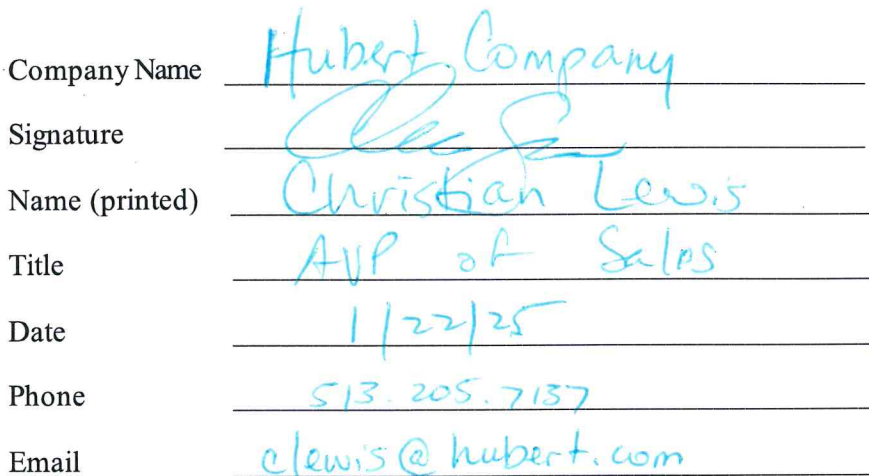 Company Name Hubert Company
Signature
Name (printed) Christian Lewis
Title AVP of Sales
Date 1/22/25
Phone 513.205.7137
Email clewis@hubert.com